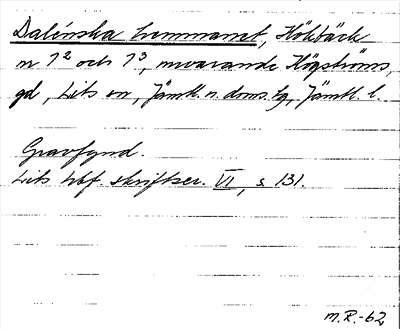 Dalénska hemmanet, Hökbäck
nr 1² och 1³, nuvarande Högströms,
gd, Lits sn, Jämtl. n. doms. tg, Jämtl. l.
Gravfynd.
Lits hbf. skriftser. VI, s. 131.
M.R.-62